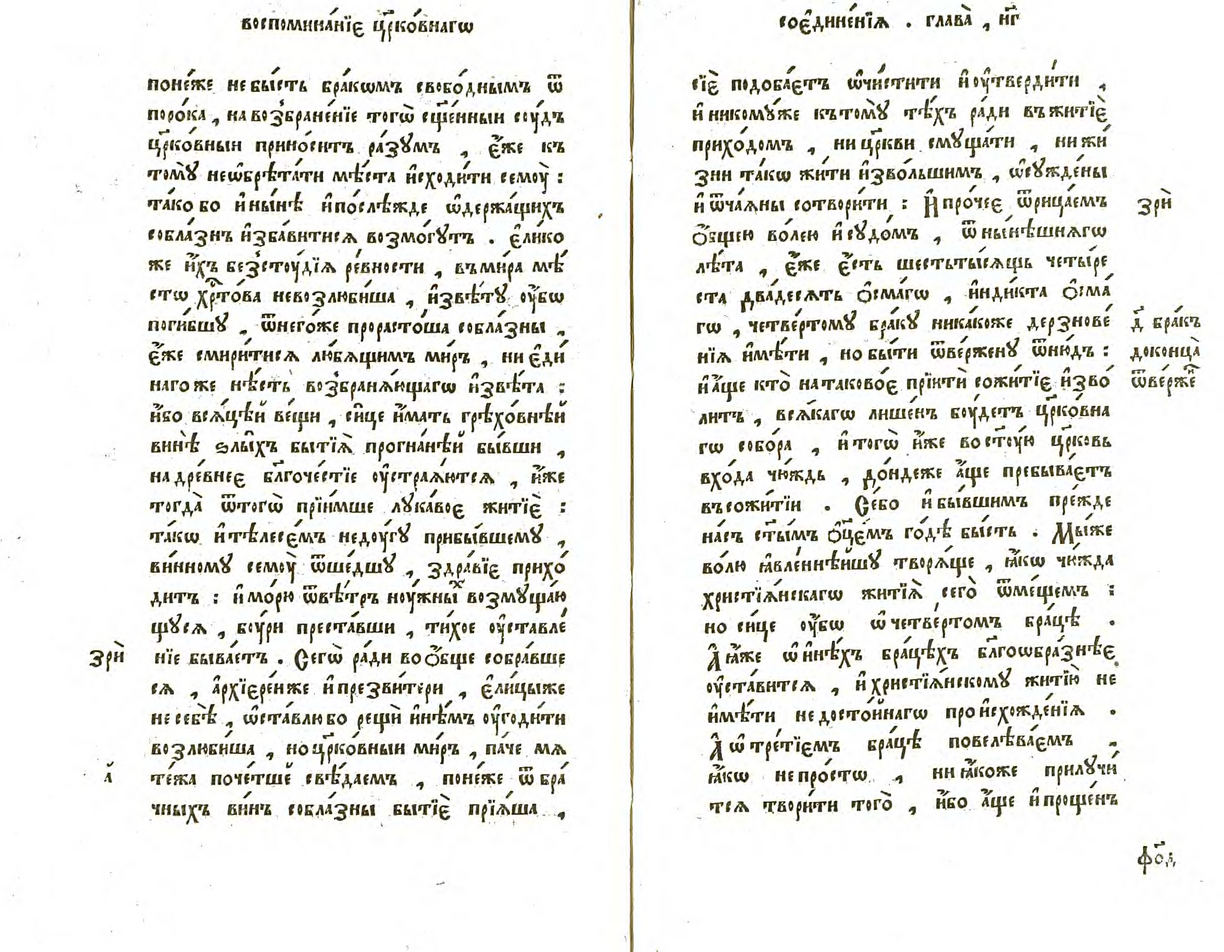 воспомина́нїє цр҃ко́внагѡ
поне́же небы́сть бра́кѡмъ свобо́днымъ ѿ
поро́ка , навозбране́нїе тогѡ̀ сщ҃е́нныи сꙋ́дъ
цр҃ко́вныи прино́ситъ ра́зумъ , є҆́же къ
томꙋ̀ неѡбрѣта́ти мѣ́ста и҆сходи́ти семꙋ̀ :
та́ко бо и҆ны́нѣ и҆после́жде ѡ҆держа́щихъ
собла́знъ и҆зба́витися возмо́гутъ . є҆ли́ко
же и҆́хъ безстꙋ́дїя ре́вности , въми́ра мѣ́
сто хрⷭ҇то́ва невозлюби́ша , и҆звѣ́тꙋ ᲂу҆́бѡ
поги́бшꙋ , ѿнего́же прорасто́ша собла́зны ,
є҆́же смири́тися лю́бящимъ ми́ръ , ни є҆ди́
наго же нѣ́сть возбраня́ющагѡ и҆звѣ́та :
и҆́бо вся́цѣй ве́щи , си́це и҆́мать грѣхо́внѣй
винѣ̀ ѕлы́хъ бытїѧ̀ прогна́нѣй бы́вши ,
надре́внее бл҃гоче́стїе ᲂу҆страѧ́ются , и҆́же
тогда̀ ѿтогѡ̀ прїи́мше лꙋка́вое житїѐ :
та́кѡ и҆тѣлесє́мъ недꙋ́гꙋ прибы́вшемꙋ ,
ви́нномꙋ семꙋ̀ ѿше́дшꙋ , здра́вїе прихо́
дитъ : и҆мо́рю ѿвѣ́тръ нꙋ́жныⷯ возмꙋща́ю
щꙋся , бꙋ́ри преста́вши , ти́хое ᲂу҆ставле́
нїе быва́етъ . Сегѡ̀ ра́ди во ѻ҆́бще собра́вше
ся , а҆рхїере́иже и҆презви́тери , є҆ли́цыже
не себѣ̀ , ѡ҆ставлю́ бо рещѝ и҆нѣ́мъ ᲂу҆годи́ти
возлюби́ша , ноцр҃ко́вныи ми́ръ , па́че мя
те́жа поче́тше свѣ́даемъ , поне́же ѿ бра́
чныхъ ви́нъ собла́зны бытїѐ прїя́ша ,
зрѝ
а҃
соєдине́нїя . глава̀ , н҃г
сїѐ подоба́етъ ѡ҆чи́стити и҆ᲂу҆тверди́ти ,
и҆ никомꙋ́же къто́мꙋ тѣ́хъ ра́ди въ житїѐ
прихо́домъ , ни цр҃кви смꙋща́ти , ни жи́
зни та́кѡ жи́ти и҆зво́льшимъ , ѡ҆сꙋжде́ны
и҆ ѿча́яны сотвори́ти : И҆ про́чее ѿрица́емъ
ѻ҆́бщею во́лею и҆ сꙋдо́мъ , ѿ ны́нѣшнягѡ
лѣ́та , є҆́же є҆́сть шестьты́сящь четы́ре
ста два́десять ѻ҆сма́гѡ , и҆нди́кта ѻ҆сма́
гѡ , четве́ртомꙋ бра́кꙋ ника́коже дерзнове́
нїя и҆мѣ́ти , но бы́ти ѿве́рженꙋ ѿню́дъ :
и҆ а҆́ще кто̀ на таково́е прїитѝ сожи́тїе и҆зво́
литъ , вся́кагѡ лише́нъ бꙋ́детъ цр҃ко́вна
гѡ собо́ра , и҆ тогѡ̀ и҆́же во ст҃ꙋ́ю цр҃ковь
вхо́да чю́ждь , до́ндеже а҆́ще пребыва́етъ
въсожи́тїи . Се́бо и҆ бы́вшимъ пре́жде
на́съ ст҃ы́мъ ѻ҆ц҃є́мъ го́дѣ бы́сть . Мы́же
во́лю ꙗ҆вле́ннѣйшꙋ творя́ще , ꙗ҆́кѡ чю́жда
христїя́нскагѡ житїѧ̀ сегѡ̀ ѿме́щемъ :
но си́це ᲂу҆́бѡ ѡ҆ четве́ртомъ бра́цѣ .
А ꙗ҆́же ѡ҆ и҆нѣ́хъ бра́цѣхъ бл҃гоѡбра́знѣе
ᲂу҆ста́вится , и҆ христїя́нскомꙋ житїю̀ не
и҆мѣ́ти недосто́йнагѡ происхожде́нїя .
А ѡ҆ тре́тїемъ бра́цѣ повелѣва́емъ ,
ꙗ҆́кѡ непро́стѡ , ни ꙗ҆́коже прилꙋчи́
тся твори́ти того̀ , и҆́бо а҆́ще и҆ проще́нъ
зрѝ
д҃ бра́къ
доконца̀
ѿве́ржеⷩ